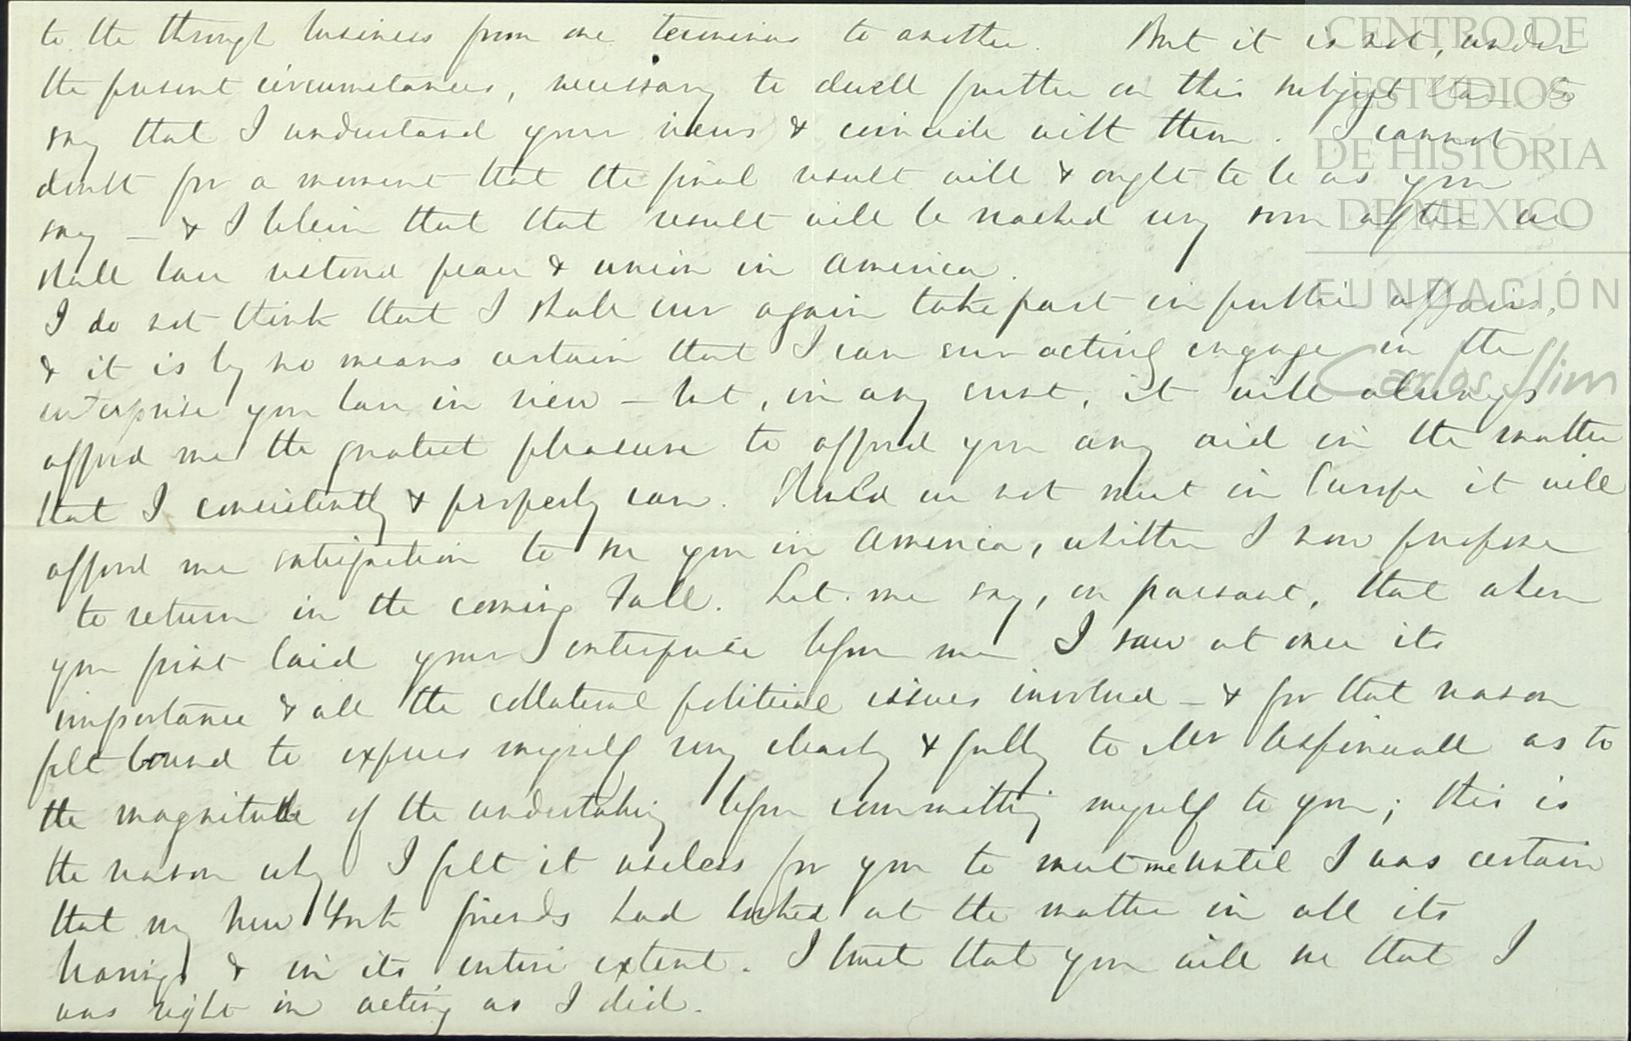 to the through business from one terminus to another. But it is not, under
the present circumstances, necessary to dwell further on this subject than to
say that I understand your views & coincide with them. I cannot
doubt for a moment that the final result will & ought to be as you
say – & I believe that that result will be reached very soon after we
shall have restored peace & union in America.
I do not think that I shall ever again take part in public affairs,
& it is by no means certain that I can ever actively engage in the
enterprise you have in view – but, in any event, it will always
afford me the greatest pleasure to afford you any aid in the matter
that I consistently & properly can. Should we not meet in Europe it will
afford me satisfaction to see you in America, whither I now propose
to return in the coming Fall. Let me say, en passant, that when
you first laid your enterprise before me I saw at once its
importance & all the collateral political issues involved – & for that reason
felt bound to express myself very clearly & fully to Mr Aspinwall as to
the magnitude of the undertaking before committing myself to you; this is
the reason why I felt it useless for you to meet me until I was certain
that my New York friends had looked at the matter in all its
bearings & in its entire extent. I trust that you will see that I
was right in acting as I did.
CENTRO DE
ESTUDIOS
DE HISTORIA
DE MEXICO
FUNDACIÓN
Carlos Slim